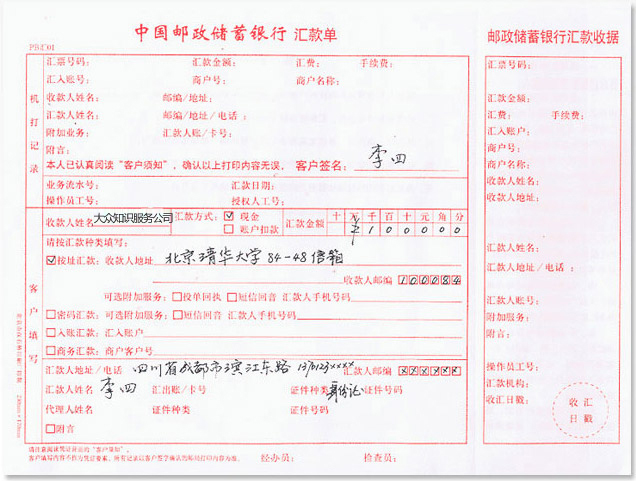 中国邮政储蓄银行 汇款单
PBJ01
汇票号码: 汇款金额: 汇费: 手续费:
汇入账号: 商户号: 商户名称:
收款人姓名: 邮编/地址:
汇款人姓名: 邮编/地址/电话:
附加业务: 汇款人账/卡号:
附言:
本人已认真阅读“客户须知”,确认以上打印内容无误, 客户签名: 李四
机打记录
业务流水号: 汇款日期:
操作员工号: 授权人工号:
收款人姓名 大众知识服务公司 汇款方式: ☑现金 □账户扣款 汇款金额 十 万 千 百 十 元 角 分
¥ 1 0 0 0 0 0
请按汇款种类填写:
☑按址汇款: 收款人地址 北京清华大学84-48信箱
收款人邮编 100084
可选附加服务: □投单回执 □短信回音 汇款人手机号码
□密码汇款: 可选附加服务: □短信回音 汇款人手机号码
□入账汇款: 汇入账户
□商务汇款: 商户客户号
客户填写
汇款人地址/电话 四川省成都市滨江东路 汇款人邮编 ××××××
汇款人姓名 李四 汇出账/卡号 证件种类 身份证 证件号码
代理人姓名 证件种类 证件号码
□附言
请注意阅读凭证背面的“客户须知”。
经办员: 检查员:
邮政储蓄银行汇款收据
汇票号码:
汇款金额:
汇费: 手续费:
汇入账户:
商户号:
商户名称:
收款人姓名:
收款人地址:
汇款人姓名:
汇款人地址/电话:
汇款人账号:
附加服务:
附言:
操作员工号:
汇款机构:
收汇日期:
收汇
日戳